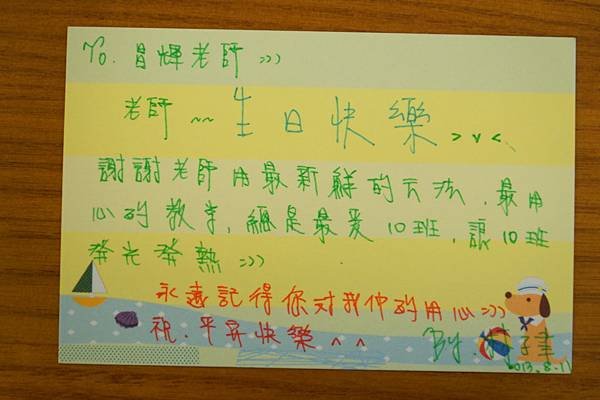 To. 昌輝老師 :))
老師~~生日快樂 >v<
謝謝老師用最新鮮的方法,最用
心的教學,總是最愛10班,讓10班
發光發熱 :))
永遠記得你對我們的用心 :))
祝.平昇快樂^^
By.
2013.8.11